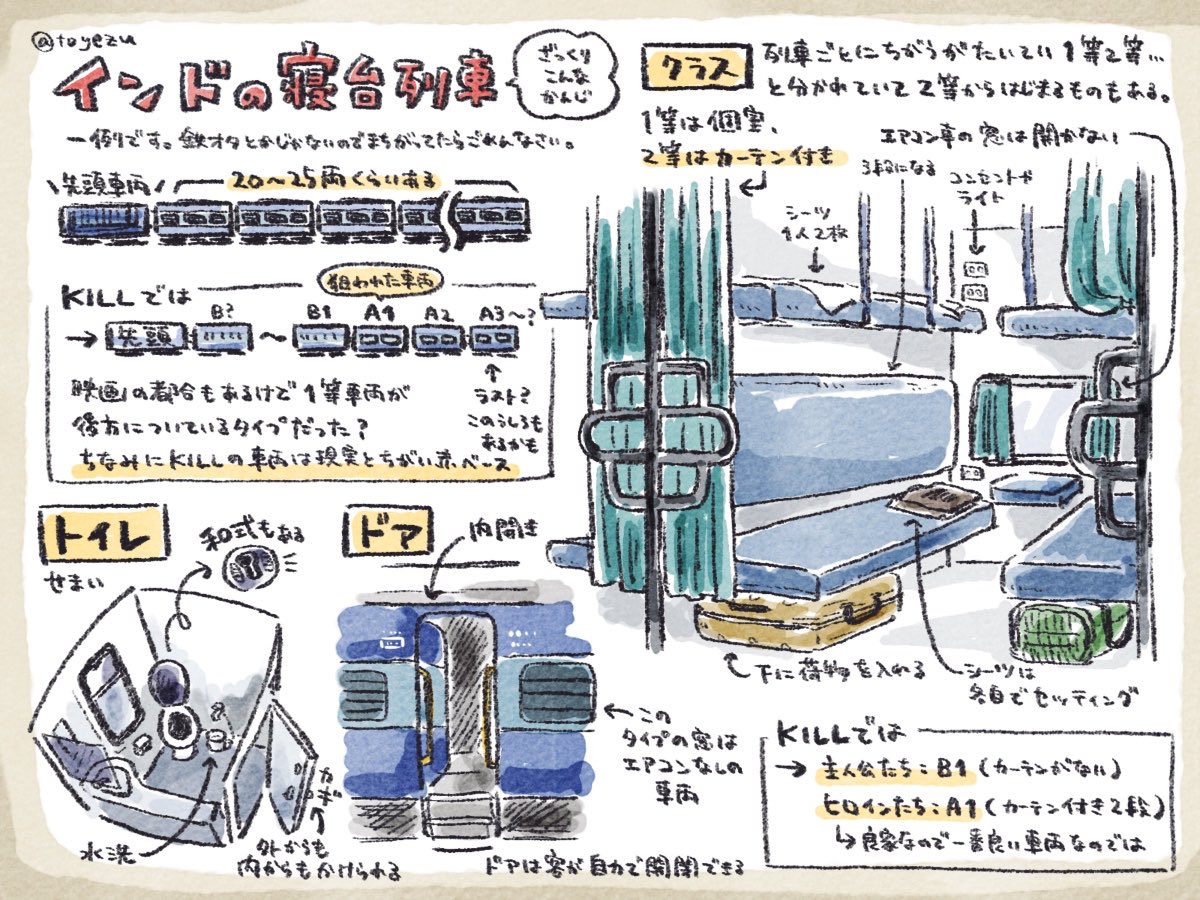 @toyezu
インドの寝台列車
ざっくり
こんな
かんじ
一例です。鉄オタとかじゃないのでまちがってたらごめんなさい。
先頭車両
20〜25両くらいある
KILLでは
狙われた車両
→ 先頭 B? 〜 B1 A1 A2 A3〜?
映画の都合もあるけど1等車両が
後方についているタイプだった?
ちなみにKILLの車両は現実とちがい赤ベース
ラスト?
このうしろも
あるかも
クラス
列車ごとにちがうがたいてい1等2等…
と分かれていて2等からはじまるものもある。
1等は個室、
2等はカーテン付き
エアコン車の窓は開かない
3段になる
コンセントや
ライト
シーツ
1人2枚
下に荷物を入れる
シーツは
各自でセッティング
トイレ
せまい
和式もある
水洗
カギ
外からも
内からもかけられる
ドア
内開き
この
タイプの窓は
エアコンなしの
車両
ドアは客が自力で開閉できる
KILLでは
→ 主人公たち:B1(カーテンがない)
ヒロインたち:A1(カーテン付き2段)
↳良家なので一番良い車両なのでは